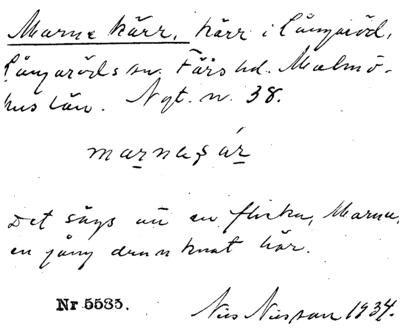 Marne kärr, kärr i Långaröd,
Långaröds sn. Färs hd. Malmö-
hus län. Nyt. n. 38.
Det sägs att en flicka, Marna,
en gång drunknat här.
Nr 5585.
Nils Nilsson 1934.